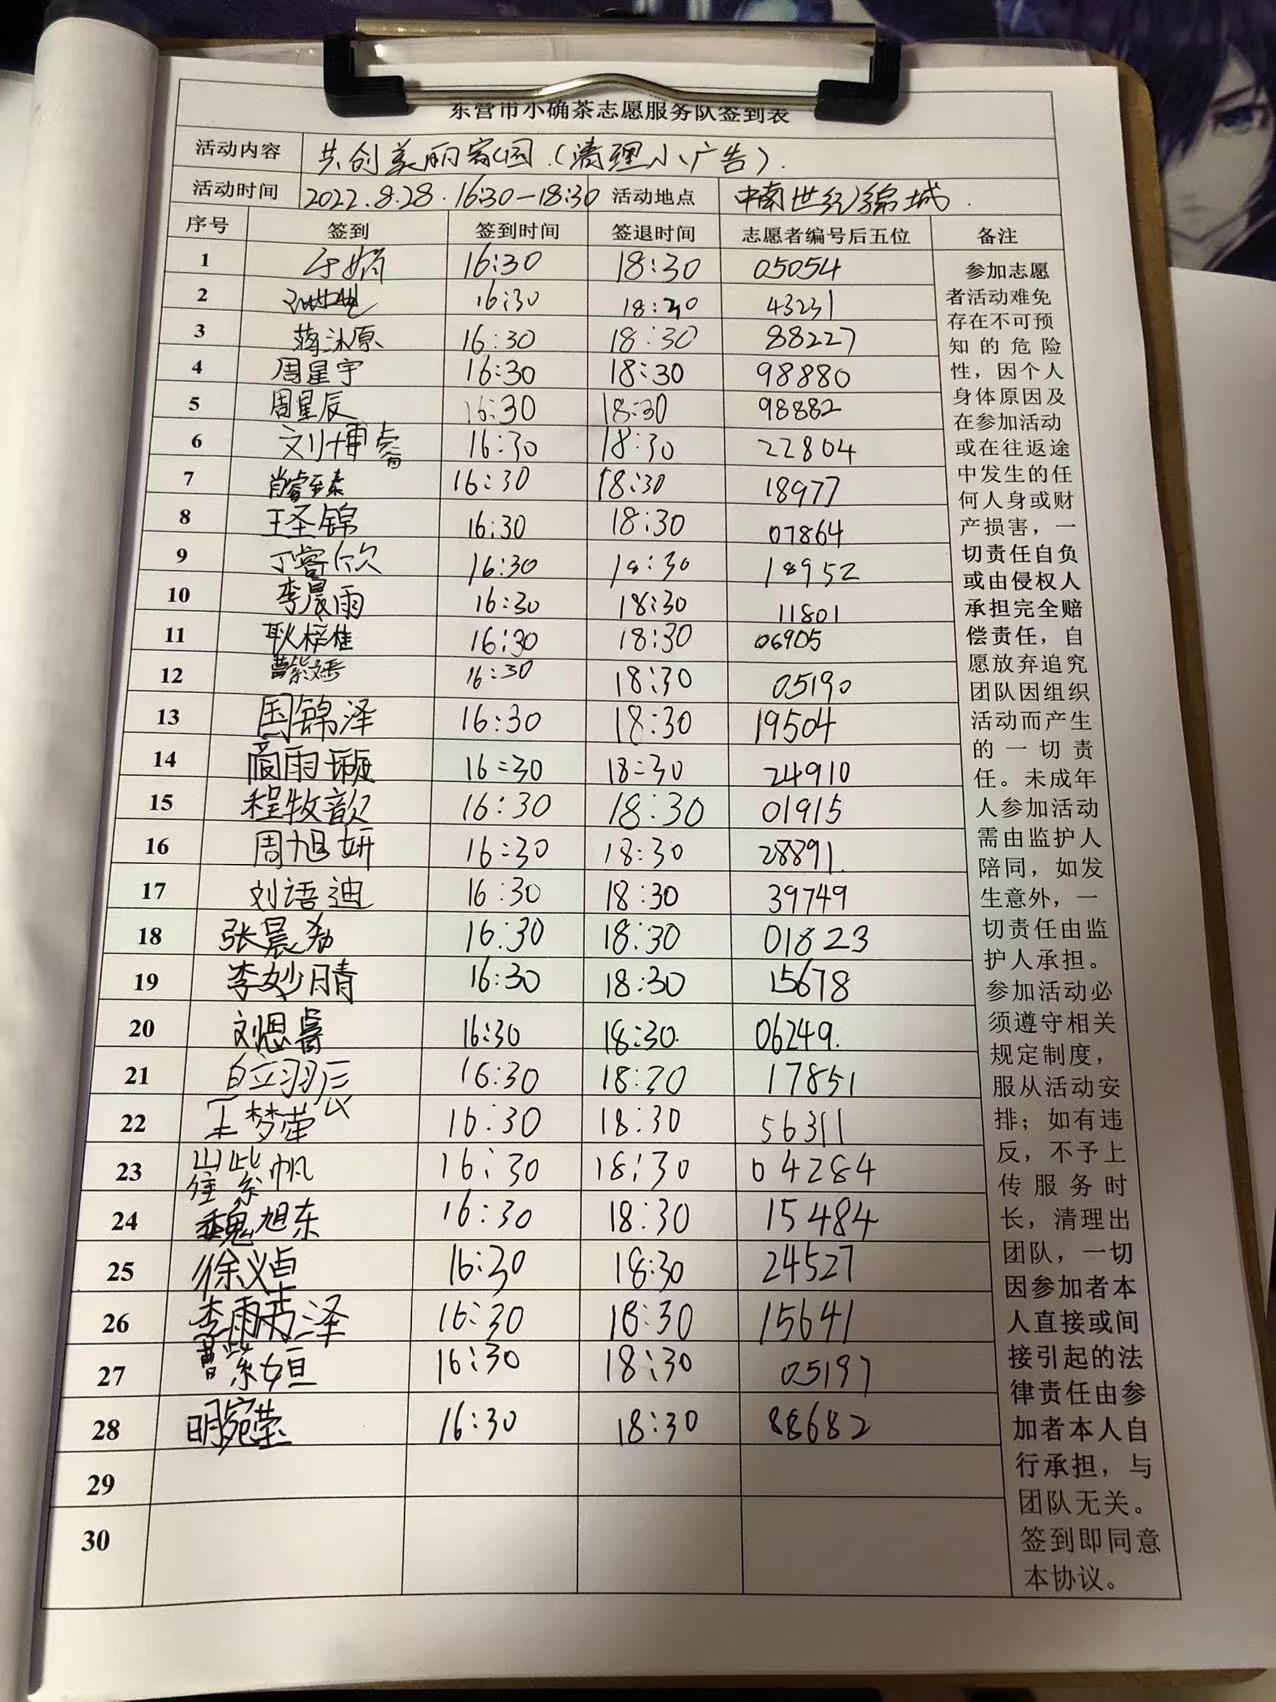 东营市小确茶志愿服务队签到表
活动内容 共创美丽家园.(清理小广告).
活动时间 2022.8.28.16:30—18:30 活动地点 中南世纪锦城.
序号 签到 签到时间 签退时间 志愿者编号后五位 备注
1 于娟 16:30 18:30 05054
2 16:30 18:30 43231
3 蒋沐原 16:30 18:30 88227
4 周星宇 16:30 18:30 98880
5 周星辰 16:30 18:30 98882
6 刘博睿 16:30 18:30 22804
7 肖睿 16:30 18:30 18977
8 王圣锦 16:30 18:30 07864
9 丁睿欣 16:30 18:30 18952
10 李晨雨 16:30 18:30 11801
11 耿梓佳 16:30 18:30 06905
12 曹紫 16:30 18:30 05190
13 国锦泽 16:30 18:30 19504
14 雨 16:30 18:30 24910
15 程牧歆 16:30 18:30 01915
16 周旭妍 16:30 18:30 28891.
17 刘语迪 16:30 18:30 39749
18 张晨 16:30 18:30 01823
19 李妙晴 16:30 18:30 15678
20 刘恩睿 16:30 18:30. 06249.
21 羽辰 16:30 18:30 17851
22 王梦莹 16:30 18:30 56311
23 崔紫帆 16:30 18:30 04284
24 魏旭东 16:30 18:30 15484
25 徐义卓 16:30 18:30 24527
26 李雨泽 16:30 18:30 15641
27 曹紫姮 16:30 18:30 05197
28 明宛莹 16:30 18:30 88682
29
30
参加志愿
者活动难免
存在不可预
知的危险
性，因个人
身体原因及
在参加活动
或在往返途
中发生的任
何人身或财
产损害，一
切责任自负
或由侵权人
承担完全赔
偿责任，自
愿放弃追究
团队因组织
活动而产生
的一切责
任。未成年
人参加活动
需由监护人
陪同，如发
生意外，一
切责任由监
护人承担。
参加活动必
须遵守相关
规定制度，
服从活动安
排；如有违
反，不予上
传服务时
长，清理出
团队，一切
因参加者本
人直接或间
接引起的法
律责任由参
加者本人自
行承担，与
团队无关。
签到即同意
本协议。